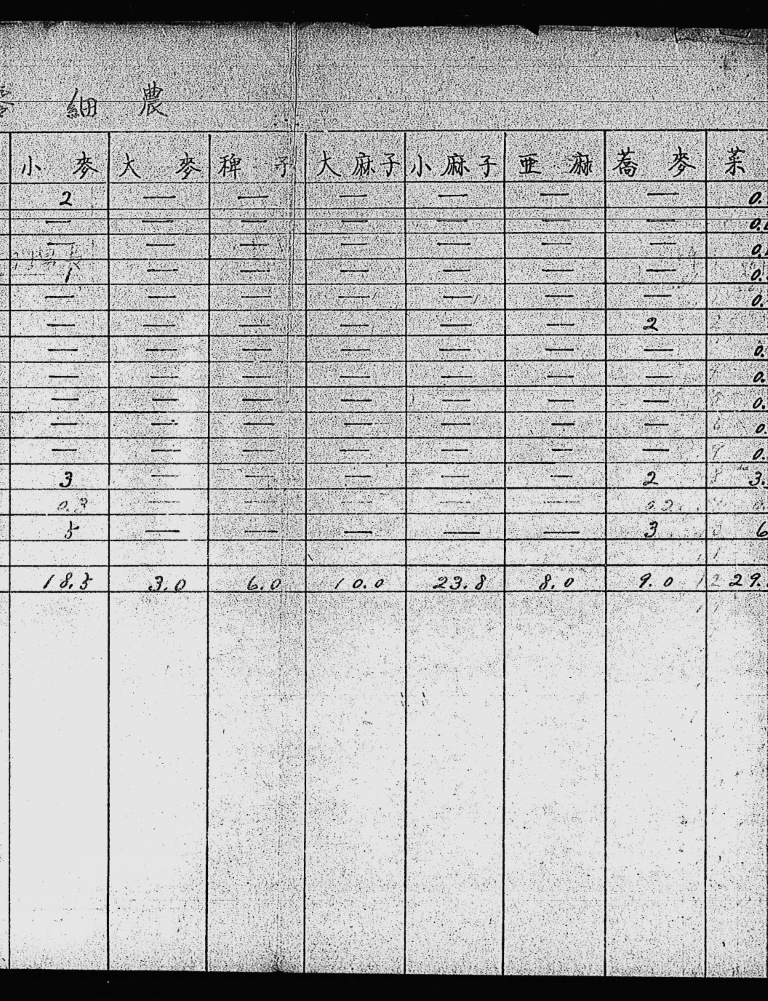 細 農
小麥 大麥 稗子 大麻子 小麻子 亜麻 蕎麥 菜
2 — — — — — — 0.
— — — — — — — 0.
— — — — — — — 0.
1 — — — — — — 0.
— — — — — — — 0.
— — — — — — 2
— — — — — — — 0.
— — — — — — — 0.
— — — — — — — 0.
— — — — — — — 0.
— — — — — — — 0.
3 — — — — — 2 3.
0.3 — — — — — 0.2 0.
5 — — — — — 3 6
18.5 3.0 6.0 10.0 23.8 8.0 9.0 29.